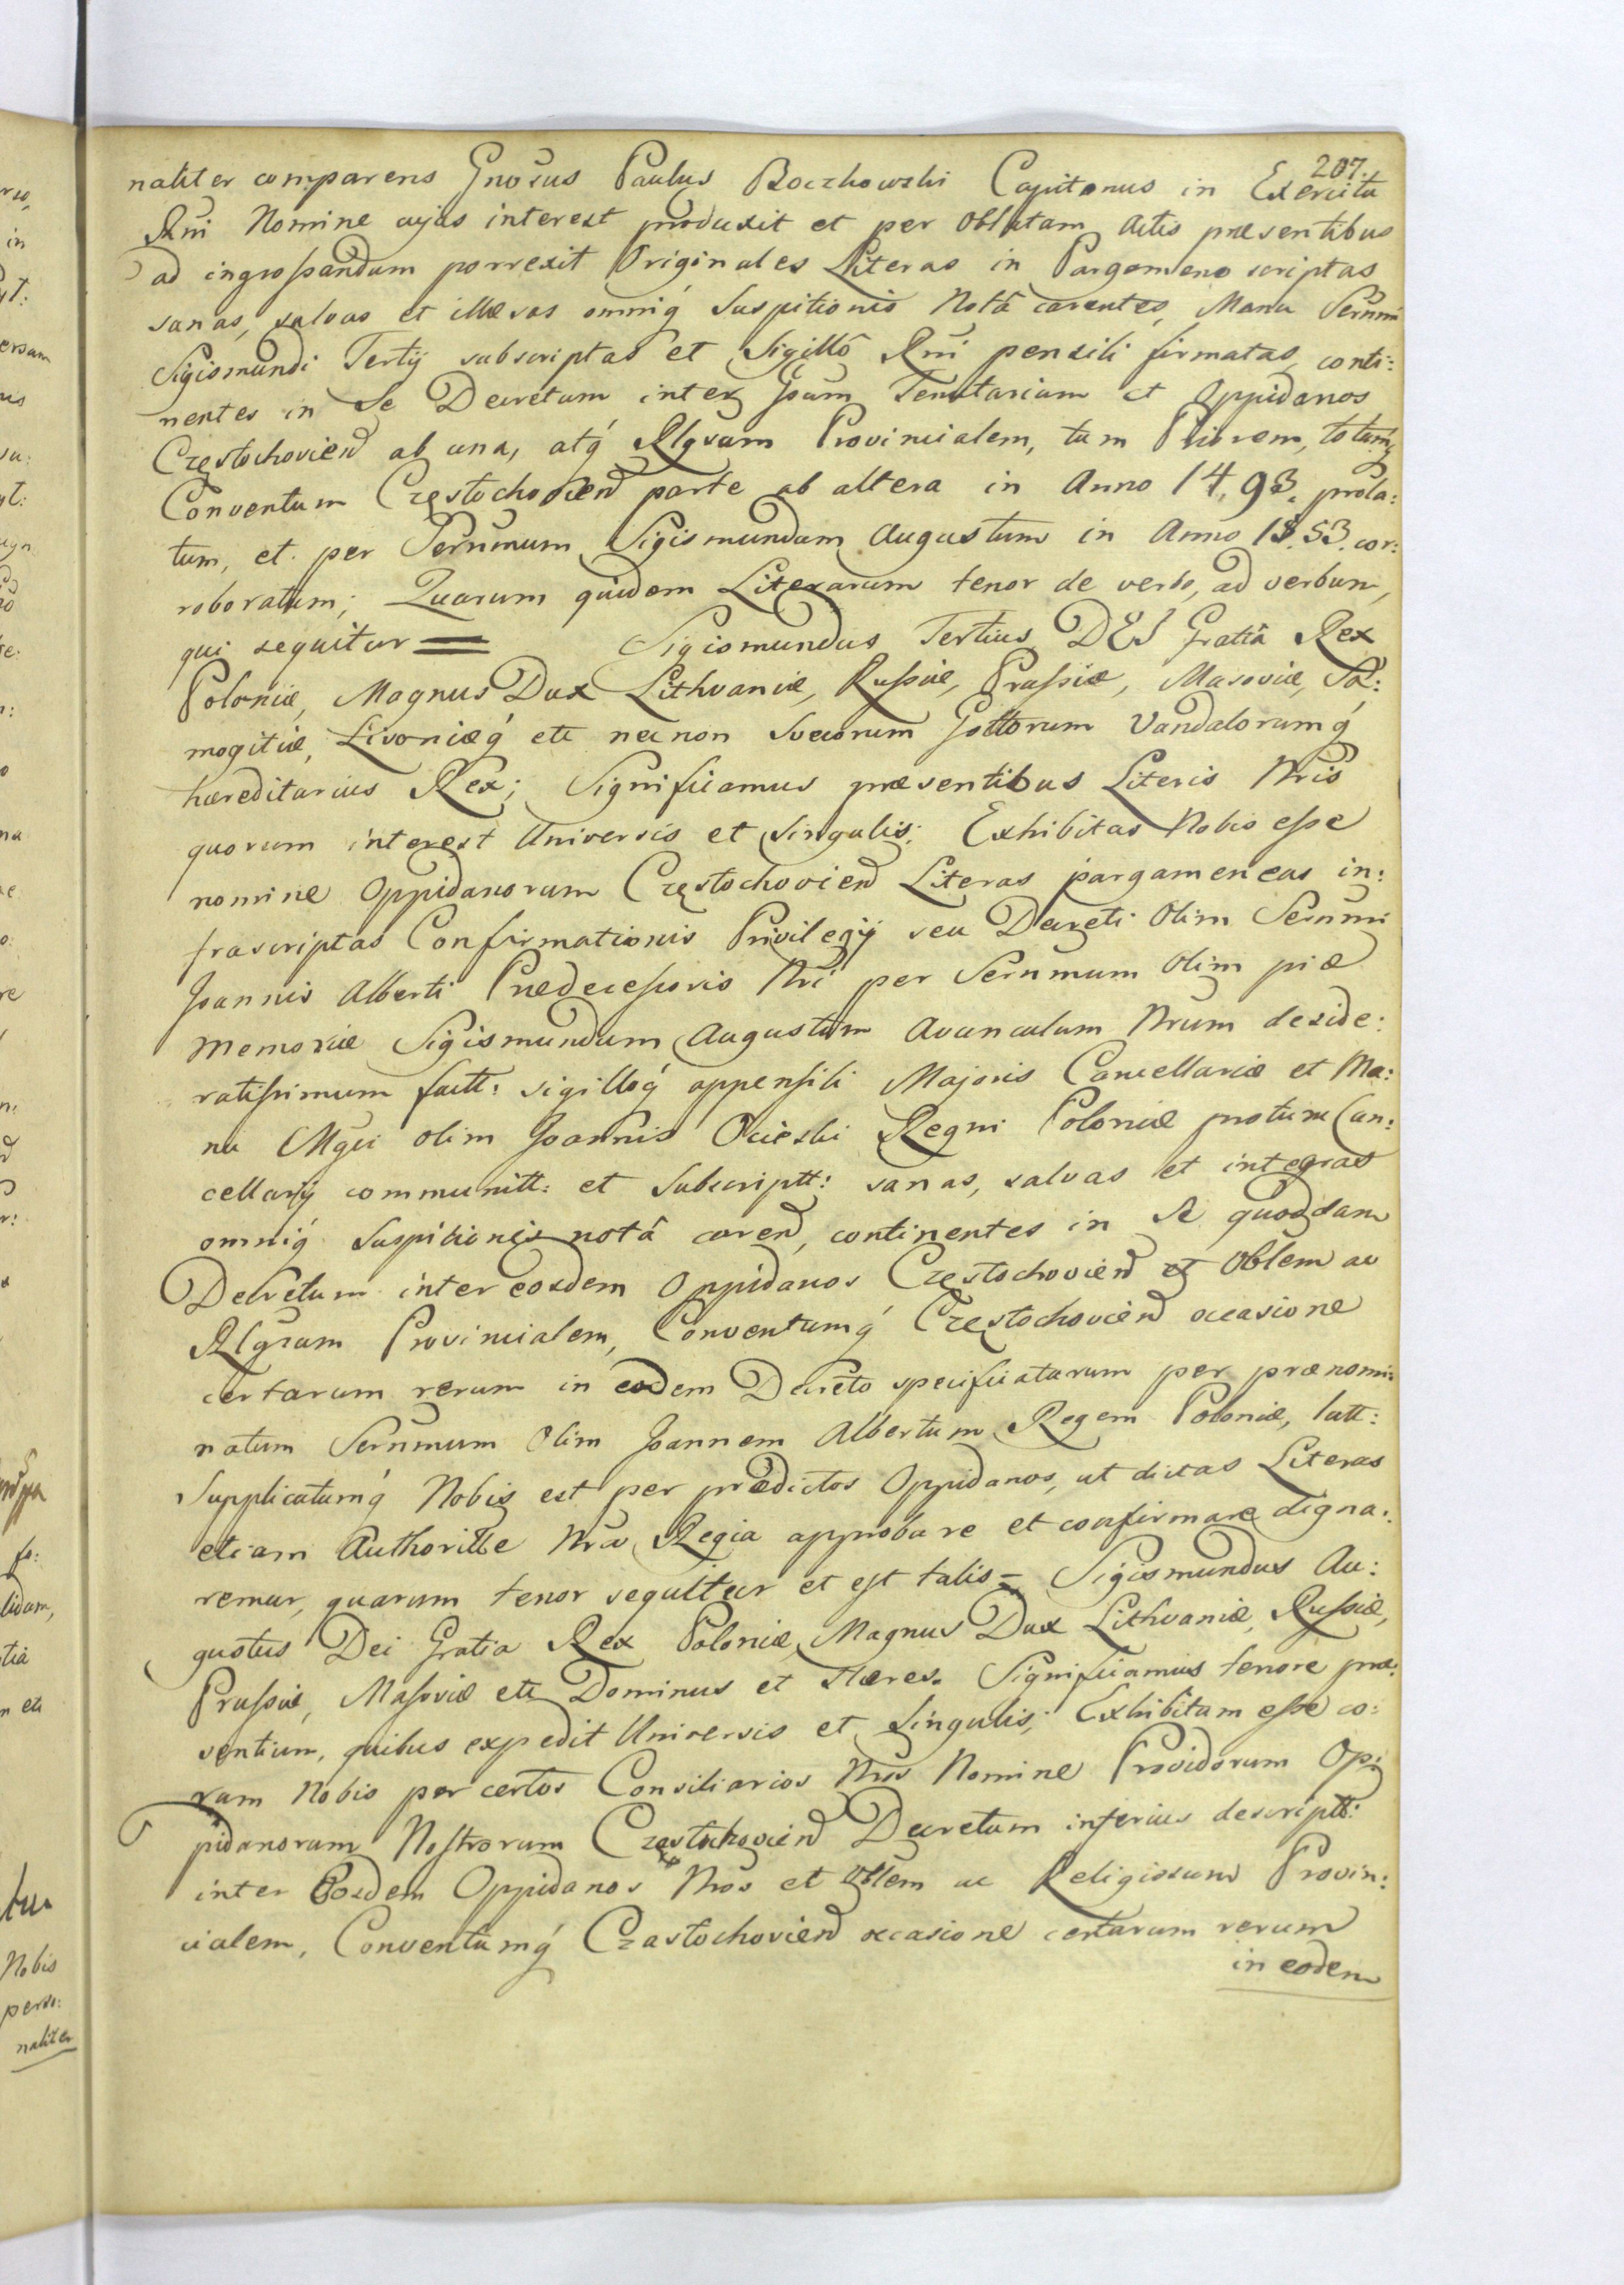 207.
naliter comparens Gnosus Paulus Boczkowski Capitanus in Exercitu
Rni Nomine cujus interest produxit et per Oblatam Actis præsentibus
ad ingrossandum porrexit Originales Literas in Pargameno scriptas
sanas, salvas et illæsas omniq́ Suspitionis Notâ carentes, Manu Sernmi
Sigismundi Tertij subscriptas et Sigillô Rni pensili firmatas, conti:
nentes in Se Decretum inter Gsum Tenutarium et Oppidanos
Częstochovien̄ ab una, atq́ Rlgsum Provincialem, tum Priorem, totumq́
Conventum Częstochovien̄ parte ab altera in Anno 14.93. prola:
tum, et per Sernmum Sigismundum Augustum in Anno 15.53. cor:
roboratum; Quarum quidem Literarum tenor de verbo, ad verbum,
qui sequitur = Sigismundus Tertius DEI Gratiâ Rex
Poloniæ, Magnus Dux Lithvaniæ, Russiæ, Prussiæ, Masoviæ, Sa:
mogitiæ, Livoniæq́ etc necnon Svecorum Gottorum Vandalorumq́
hæreditarius Rex; Significamus præsentibus Literis Nris
quorum interest Universis et Singulis: Exhibitas Nobis esse
nomine Oppidanorum Częstochovien̄ Literas pargameneas in:
frascriptas Confirmationis Privilegij seu Decreti Olim Sernmi
Joannis Alberti Prædecessoris Nri per Sernmum Olim piæ
Memoriæ Sigismundum Augustum Avunculum Nrum deside:
ratissimum factt: sigilloq́ appensili Majoris Cancellariæ et Ma:
nu Mgci olim Joannis Ocieski Regni Poloniæ protunc Can:
cellarij communitt: et Subscriptt: sanas, salvas et integras
omniq́ Suspitionis notâ caren̄, continentes in Se quoddam
Decretum inter eosdem Oppidanos Częstochovien̄ et Oblem ac
Rlgsum Provincialem, Conventumq́ Częstochovien̄ occasione
certarum rerum in eodem Decreto specificatarum per prænomi:
natum Sernmum Olim Joannem Albertum Regem Poloniæ, latt:
Supplicatumq́ Nobis est per prædictos Oppidanos, ut dictas Literas
etiam Authoritte Nra Regia approbare et confirmare digna:
remur, quarum tenor sequitur et est talis = Sigismundus Au:
gustus Dei Gratia Rex Poloniæ Magnus Dux Lithvaniæ, Russiæ,
Prussiæ, Masoviæ etc Dominus et Hæres. Significamus tenore præ:
sentium, quibus expedit Universis et Singulis; Exhibitum esse co:
ram Nobis per certos Consiliarios Nros Nomine Providorum Op:
pidanorum Nostrorum Częstochovien̄ Decretum inferius descriptt:
inter Eosdem Oppidanos Nros et Oblem ac Religiosum Provin:
cialem, Conventumq́ Częstochovien̄ occasione certarum rerum
in eodem